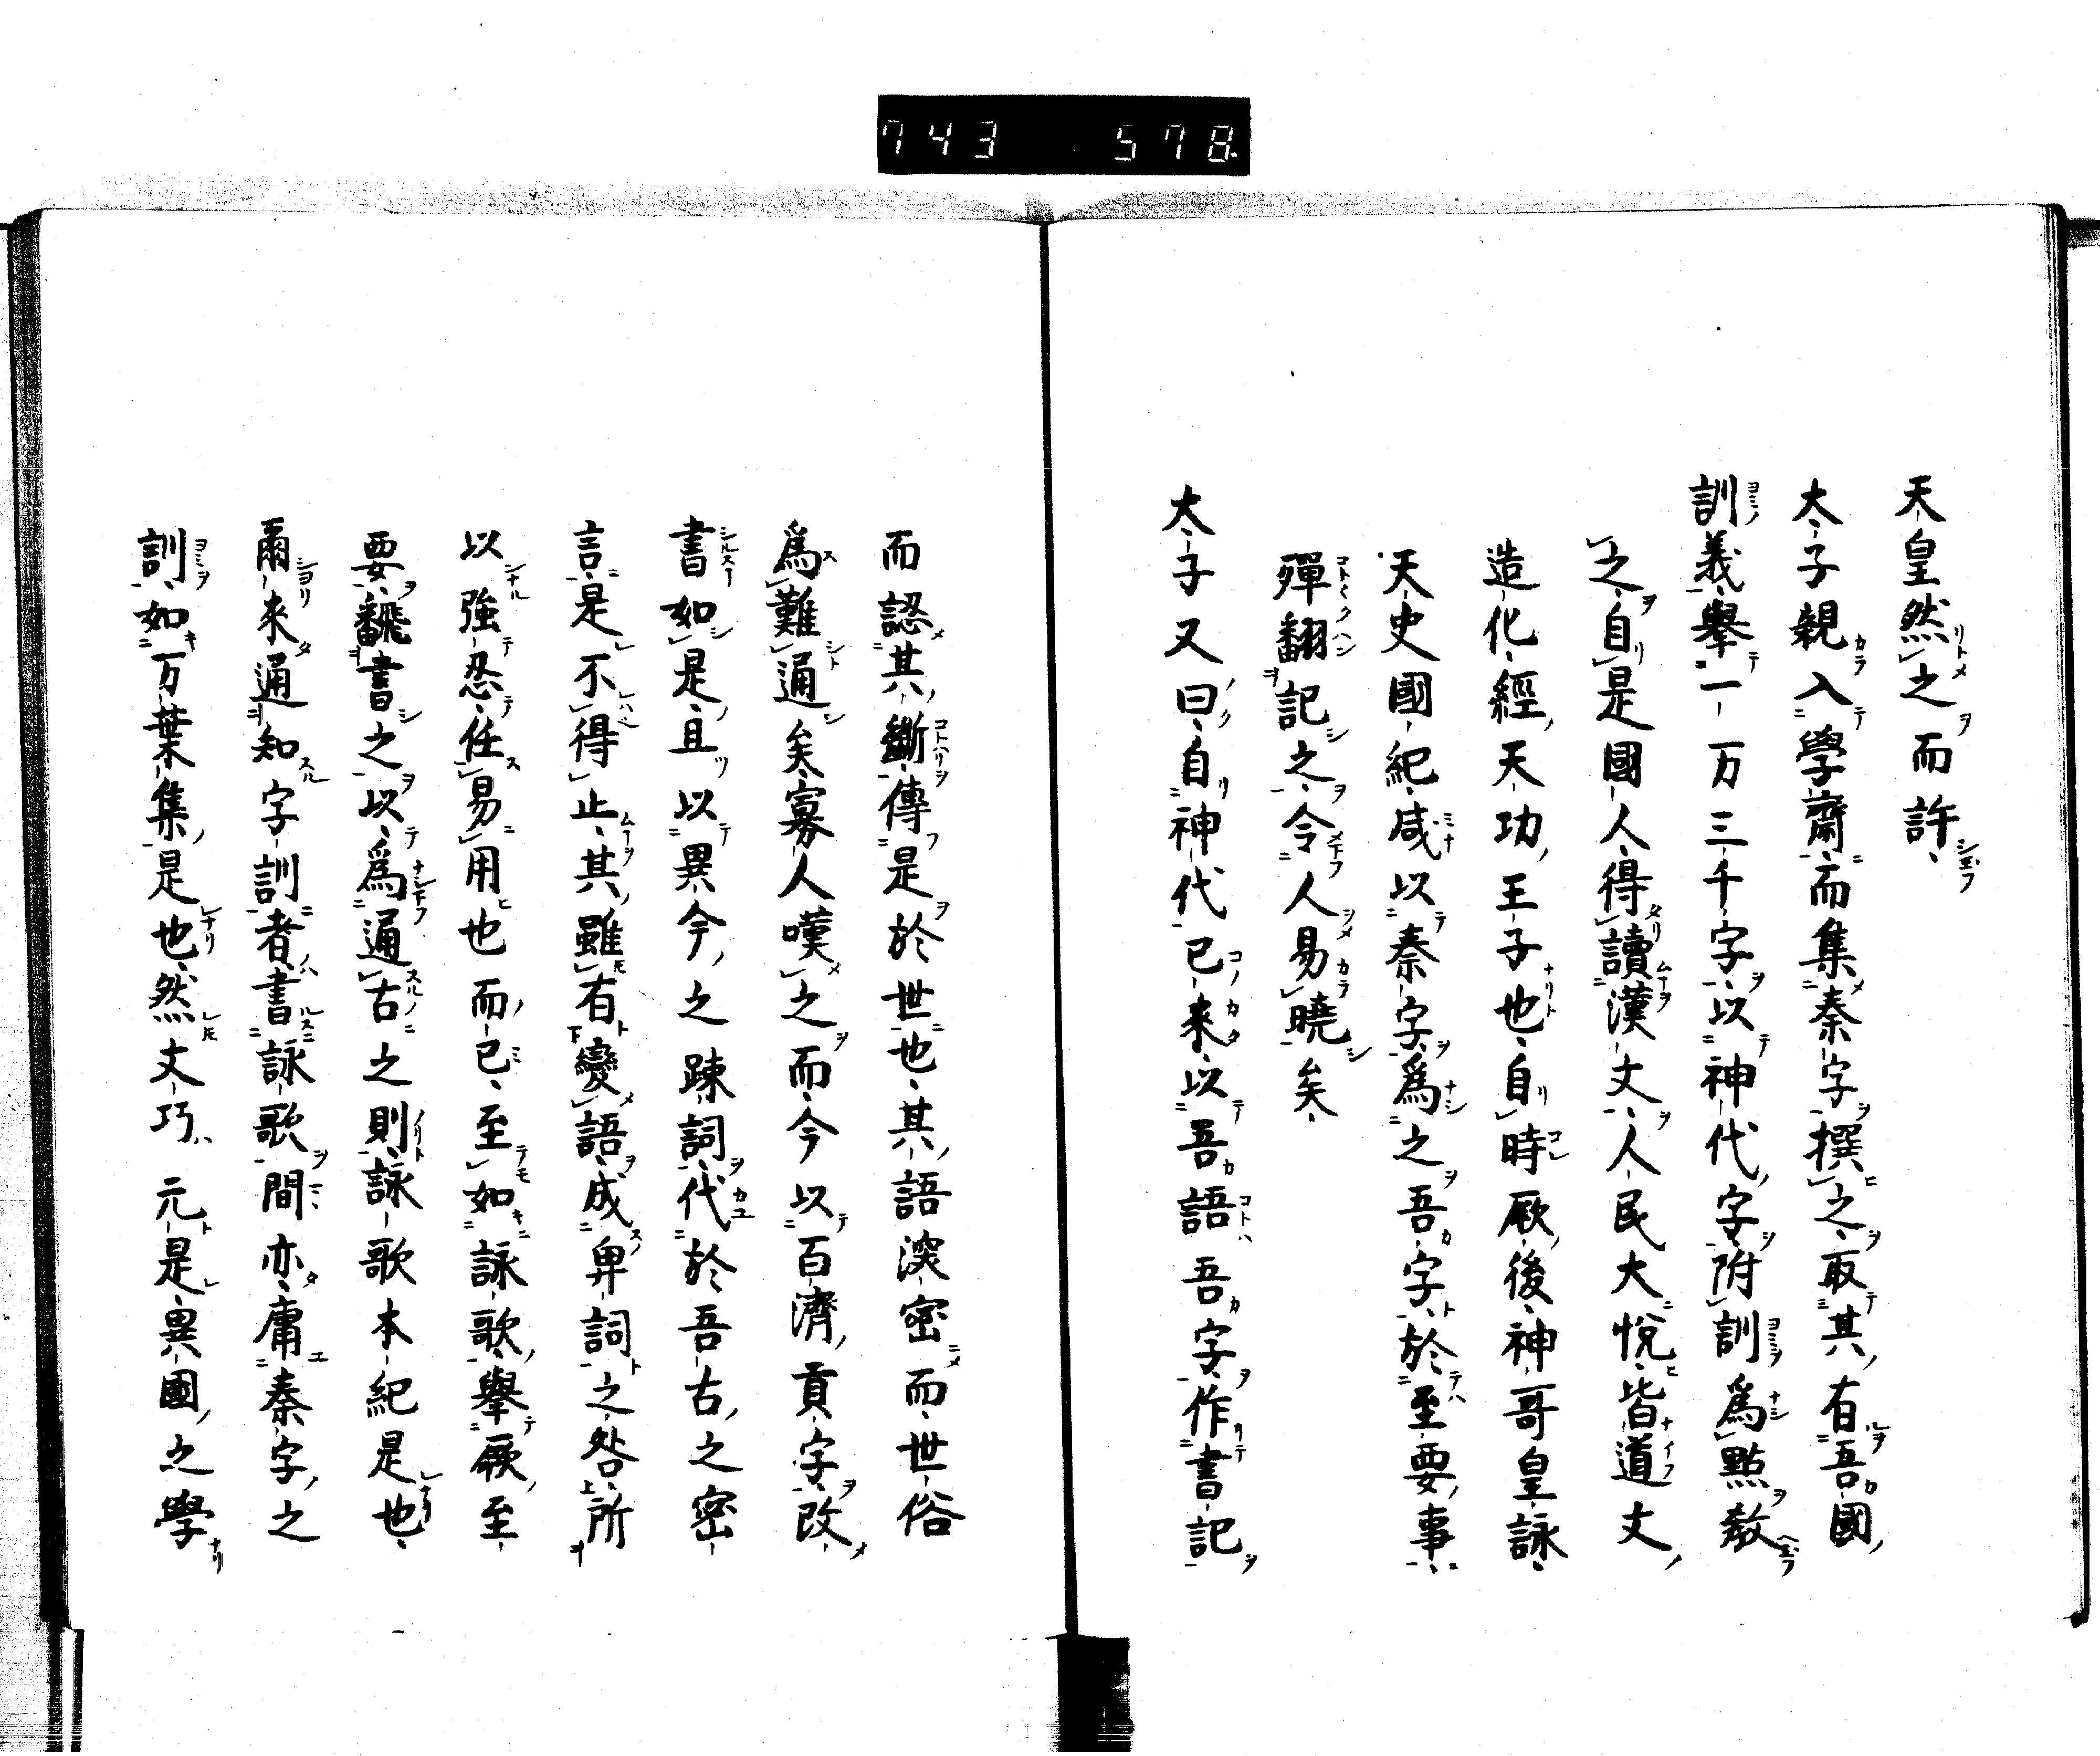 743 578
天皇然之而許
太子親入學齋而集秦字撰之取其有吾國
訓義舉一万三千字以神代字附訓為點教
之自是國人得讀漢文人民大悅皆道文
造化經天功王子也自時厥後神哥皇詠
天史國紀咸以秦字為之吾字於至要事
殫翻記之令人易曉矣
太子又曰自神代已來以吾語吾字作書記
而認其斷傳是於世也其語深密而世俗
為難通矣寡人嘆之而今以百濟貢字改
書如是且以異今之踈詞代於吾古之密
言是不得止其雖有變語成卑詞之咎所
以強忍任易用也而已至如詠歌舉厥至
要飜書之以為通古之則詠歌本紀是也
爾來通知字訓者書詠歌間亦庸秦字之
訓如万葉集是也然文巧元是異國之學